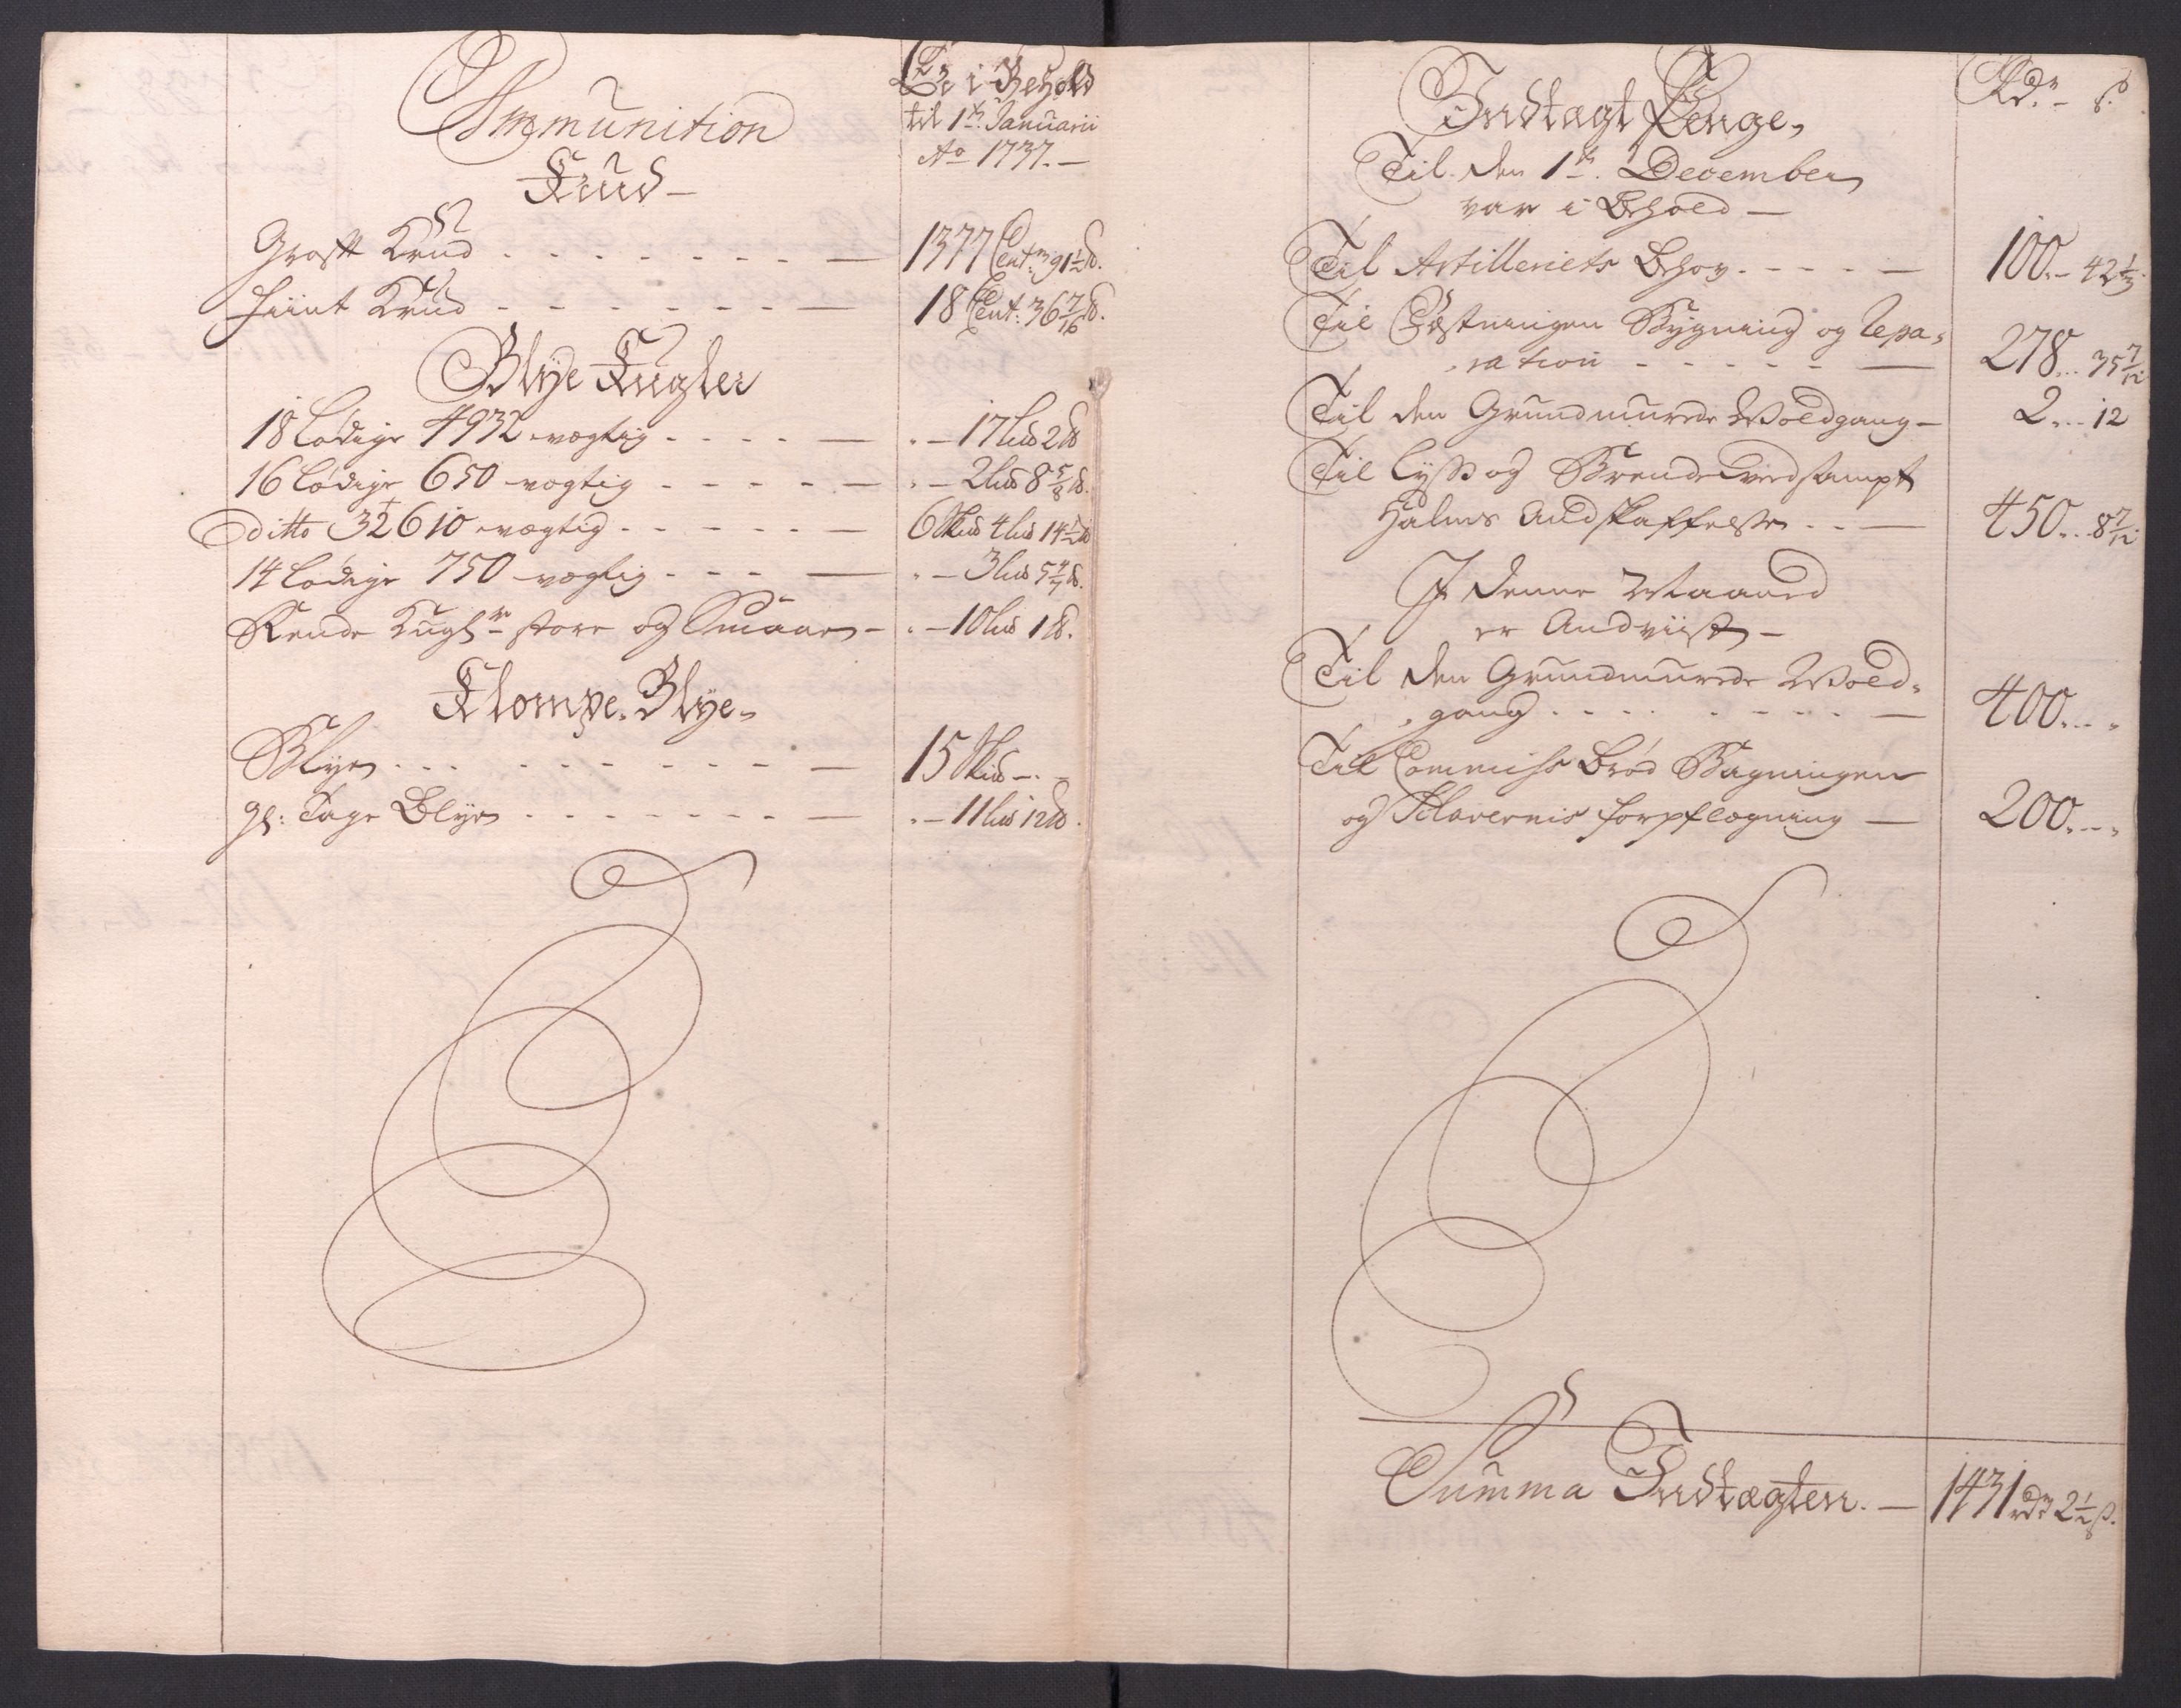 Ammunition
Er i Behold
til 1te Januarii
Ao 1737.
Krud
Groft Krud 1377 Cent: 91 1/2 ℔.
Fiint Krud 18 Cent: 36 7/16 ℔.
Blye Kugler
18 Lødige 4932 vægtig - 17 Lis 2 ℔
16 Lødige 650 vægtig - 2 Lis 8 5/8 ℔.
Ditto 32610 vægtig 6 Skis 4 Lis 14 1/2 ℔
14 Lødige 750 vægtig - 3 Lis 5 4/7 ℔.
Rende Kugler store og Smaae - 10 Lis 1 ℔.
Klompe Blye
Blye 15 Skis
gl: Tage Blye - 11 Lis 12 ℔.
Indtægt Penge,
Rdr ß
Til den 1te December
var i Behold
Til Artilleriets Behov 100 - 42 1/3
Til Fæstningen Bygning og Repa-
ration 278 .. 35 7/12
Til den Grundmurede Woldgang 2 .. 12
Til Lyss og Brendeveed sampt
Halms Andskaffelse 450 .. 8 7/12
I denne Maaned
er Andviist
Til den Grundmurede Wold-
gang 400
Til Commiss Brød Bagningen
og Slavernis forpflegning 200
Summa Indtægten. 1431 rdr 2 1/2 ß.